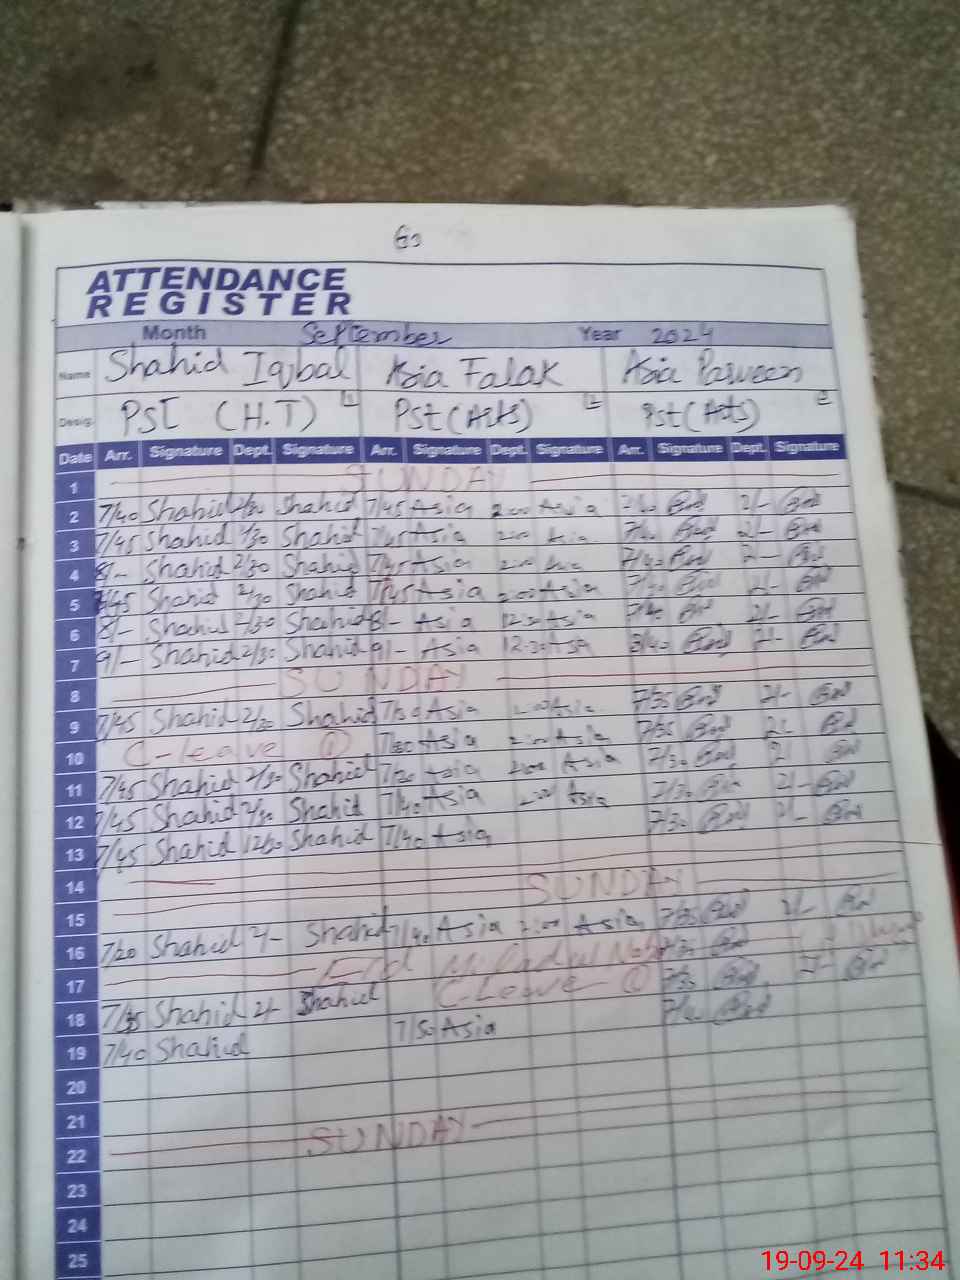 ATTENDANCE
REGISTER
Month September Year 2024
Name Shahid Iqbal Asia Falak Asia Parveen
Desig. PST (H.T) 1 Pst (Arts) 2 Pst (Arts) 3
Date Arr. Signature Dept. Signature Arr. Signature Dept. Signature Arr. Signature Dept. Signature
1 SUNDAY
2 7/40 Shahid 2/30 Shahid 7/45 Asia 2:00 Asia 2/-
3 7/45 Shahid 2/30 Shahid 7/45 Asia 2:00 Asia 2/-
4 8/- Shahid 2/30 Shahid 7/45 Asia 2:00 Asia 7/40 2/-
5 7/45 Shahid 2/30 Shahid 7/45 Asia 2:00 Asia 7/30 2/-
6 8/- Shahid 2/30 Shahid 8/- Asia 12:30 Asia 7/40 2/-
7 9/- Shahid 2/30 Shahid 9/- Asia 12:30 Asia 8/40 2/-
8 SUNDAY
9 7/45 Shahid 2/30 Shahid 7/50 Asia 2:00 Asia 7/35 2/-
10 C-leave 1 7/50 Asia 2:00 Asia 7/35
11 7/45 Shahid 2/30 Shahid 7/30 Asia 2:00 Asia 7/30
12 7/45 Shahid 2/30 Shahid 7/40 Asia 2:00 Asia 7/30 2/-
13 7/45 Shahid 12/30 Shahid 7/40 Asia 7/30 2/-
14
15 SUNDAY
16 7/20 Shahid 2/- Shahid 7/40 Asia 2:00 Asia 7/35 2/-
17 Eid Miladul 7/35
18 7/35 Shahid 2/- Shahid C-Leave 1 7/30 2/-
19 7/40 Shahid 7/50 Asia
20
21
22 SUNDAY
23
24
25
19-09-24 11:34